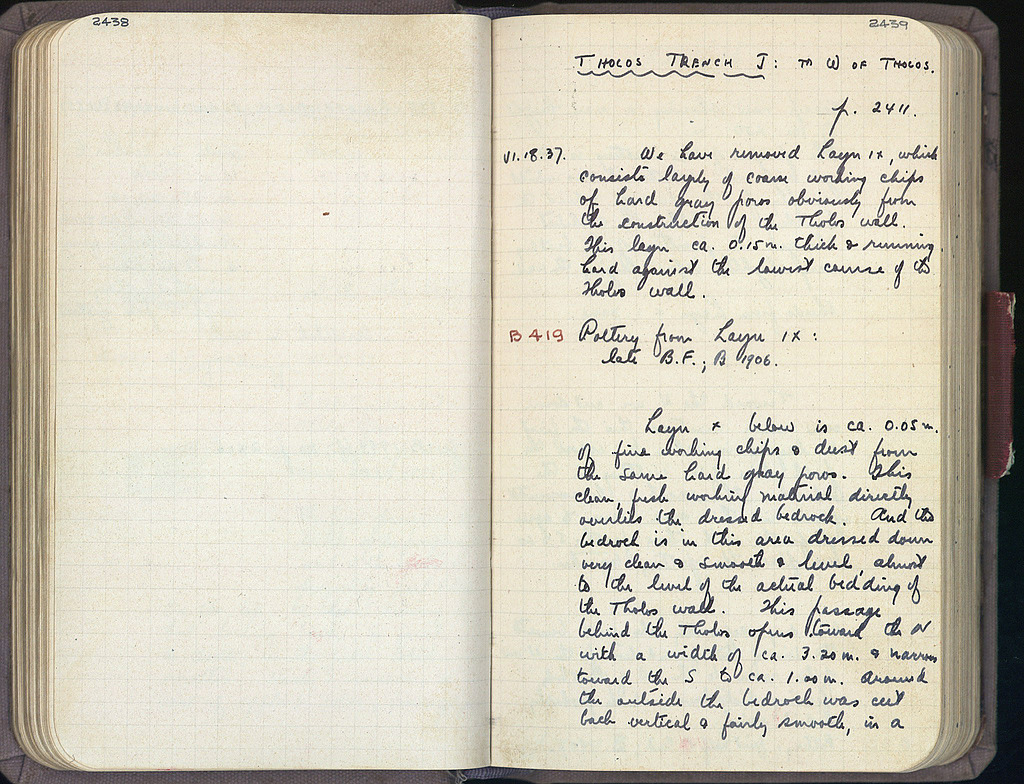 2438
2439
THOLOS TRENCH J: to W OF THOLOS.
p. 2411.
VI.18.37. We have removed Layer IX, which
consists largely of coarse working chips
of hard gray poros obviously from
the construction of the Tholos wall.
This layer ca. 0.15 m. thick & running
hard against the lowest course of the
Tholos wall.
B 419 Pottery from Layer IX:
late B.F.; B 1906.
Layer X below is ca. 0.05 m.
of fine working chips & dust from
the same hard gray poros. This
clean, fresh working material directly
overlies the dressed bedrock. And the
bedrock is in this area dressed down
very clean & smooth & level, almost
to the level of the actual bedding of
the Tholos wall. This passage
behind the Tholos opens toward the N
with a width of ca. 3.20 m. & narrows
toward the S to ca. 1.00 m. Around
the outside the bedrock was cut
back vertical & fairly smooth, in a